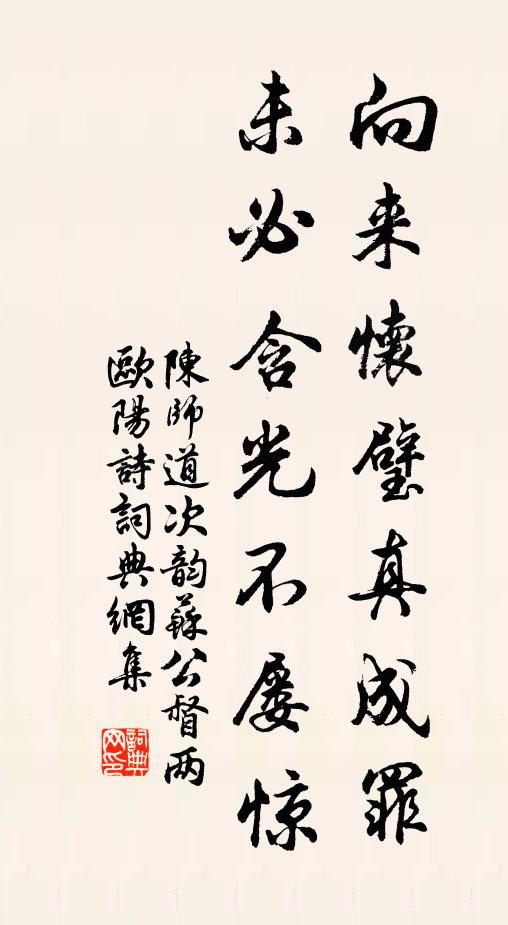 向来懷璧真成罪
未必含光不屡惊
陳師道次韵蘇公督两
歐陽詩詞典網集
詞典网印